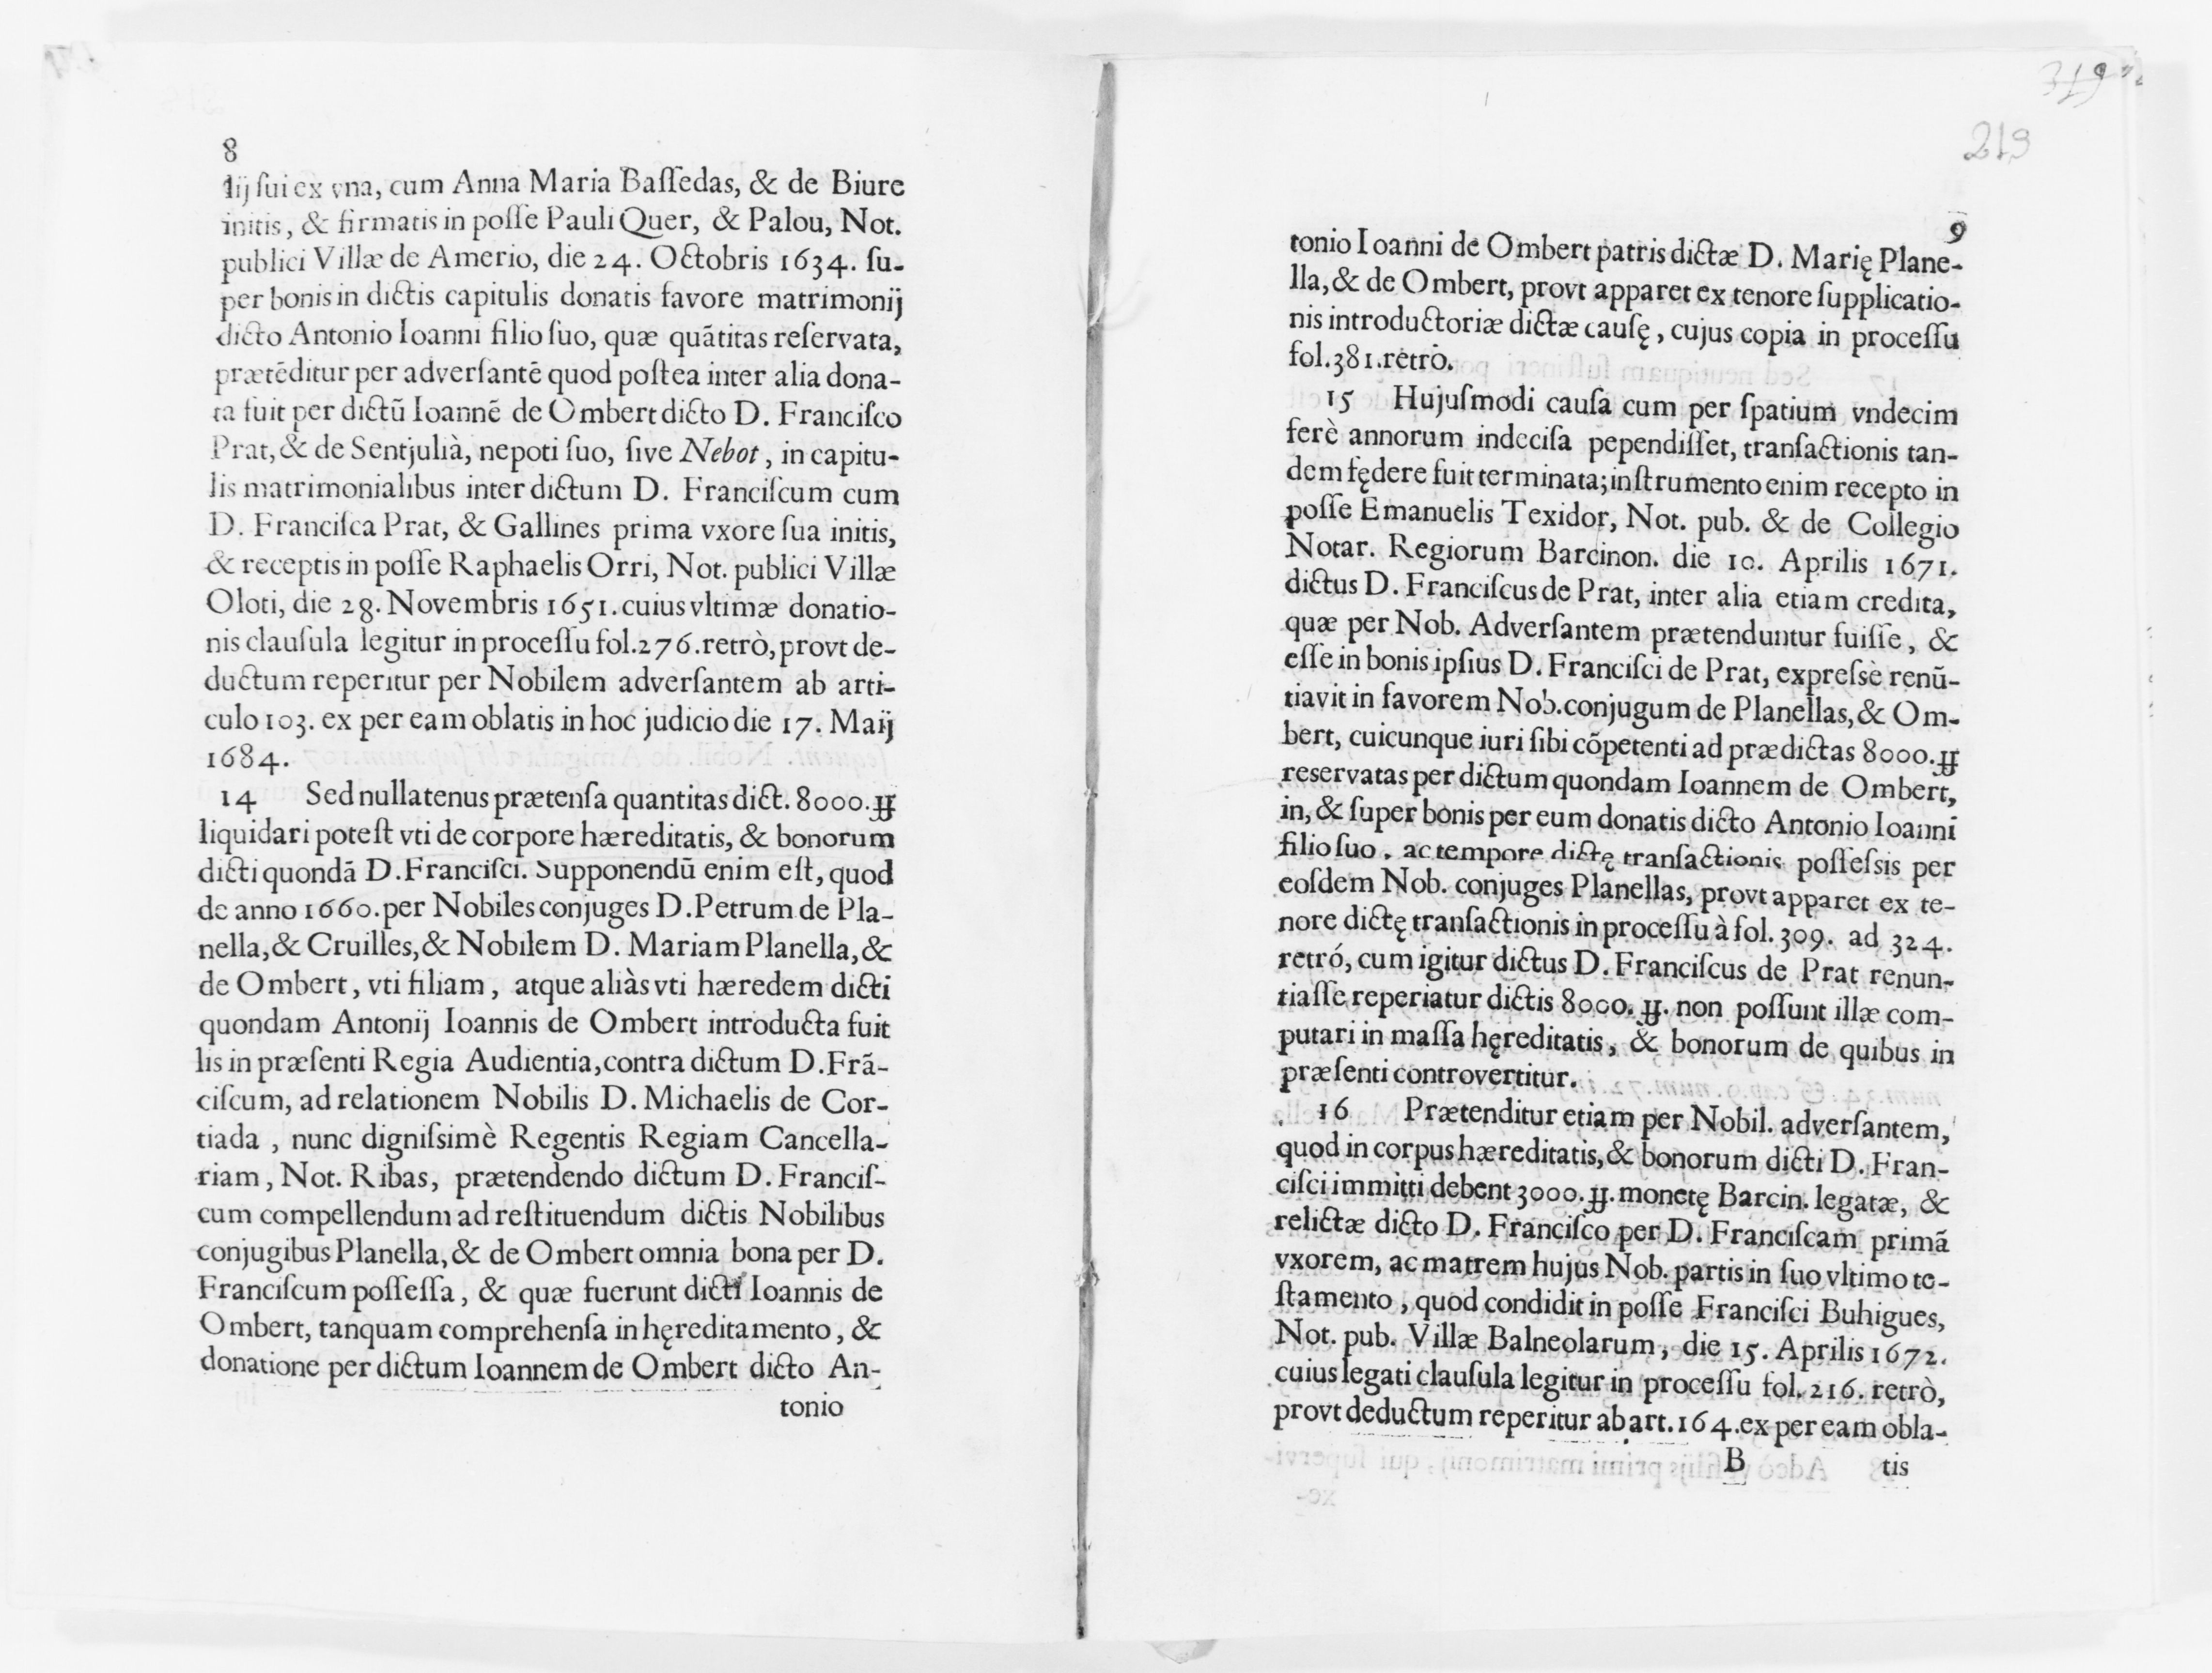 8
lij ſui ex vna, cum Anna Maria Baſſedas, & de Biure
initis, & firmatis in poſſe Pauli Quer, & Palou, Not.
publici Villæ de Amerio, die 24. Octobris 1634. ſu-
per bonis in dictis capitulis donatis favore matrimonij
dicto Antonio Ioanni filio ſuo, quæ quãtitas reſervata,
prætẽditur per adverſantẽ quod poſtea inter alia dona-
ta fuit per dictũ Ioannẽ de Ombert dicto D. Franciſco
Prat, & de Sentjulià, nepoti ſuo, ſive Nebot, in capitu-
lis matrimonialibus inter dictum D. Franciſcum cum
D. Franciſca Prat, & Gallines prima vxore ſua initis,
& receptis in poſſe Raphaelis Orri, Not. publici Villæ
Oloti, die 28. Novembris 1651. cuius vltimæ donatio-
nis clauſula legitur in proceſſu fol.276.retrò, provt de-
ductum reperitur per Nobilem adverſantem ab arti-
culo 103. ex per eam oblatis in hoc judicio die 17. Maij
1684.
14 Sed nullatenus prætenſa quantitas dict. 8000.ɟɟ
liquidari poteſt vti de corpore hæreditatis, & bonorum
dicti quondã D. Franciſci. Supponendũ enim eſt, quod
de anno 1660. per Nobiles conjuges D. Petrum de Pla-
nella, & Cruilles, & Nobilem D. Mariam Planella, &
de Ombert, vti filiam, atque aliàs vti hæredem dicti
quondam Antonij Ioannis de Ombert introducta fuit
lis in præſenti Regia Audientia, contra dictum D. Frã-
ciſcum, ad relationem Nobilis D. Michaelis de Cor-
tiada, nunc digniſsimè Regentis Regiam Cancella-
riam, Not. Ribas, prætendendo dictum D. Franciſ-
cum compellendum ad reſtituendum dictis Nobilibus
conjugibus Planella, & de Ombert omnia bona per D.
Franciſcum poſſeſſa, & quæ fuerunt dicti Ioannis de
Ombert, tanquam comprehenſa in hęreditamento, &
donatione per dictum Ioannem de Ombert dicto An-
tonio
219
9
tonio Ioanni de Ombert patris dictæ D. Marię Plane-
lla, & de Ombert, provt apparet ex tenore ſupplicatio-
nis introductoriæ dictæ cauſę, cujus copia in proceſſu
fol.381.retrò.
15 Hujuſmodi cauſa cum per ſpatium vndecim
ferè annorum indeciſa pependiſſet, tranſactionis tan-
dem fędere fuit terminata; inſtrumento enim recepto in
poſſe Emanuelis Texidor, Not. pub. & de Collegio
Notar. Regiorum Barcinon. die 10. Aprilis 1671.
dictus D. Franciſcus de Prat, inter alia etiam credita,
quæ per Nob. Adverſantem prætenduntur fuiſſe, &
eſſe in bonis ipſius D. Franciſci de Prat, expreſsè renũ-
tiavit in favorem Nob. conjugum de Planellas, & Om-
bert, cuicunque iuri ſibi cõpetenti ad prædictas 8000.ɟɟ
reservatas per dictum quondam Ioannem de Ombert,
in, & ſuper bonis per eum donatis dicto Antonio Ioanni
filio ſuo, ac tempore dictę tranſactionis poſſeſsis per
eoſdem Nob. conjuges Planellas, provt apparet ex te-
nore dictę tranſactionis in proceſſu à fol. 309. ad 324.
retró, cum igitur dictus D. Franciſcus de Prat renun-
tiaſſe reperiatur dictis 8000.ɟɟ. non poſſunt illæ com-
putari in maſſa hęreditatis, & bonorum de quibus in
præſenti controvertitur.
16 Prætenditur etiam per Nobil. adverſantem,
quod in corpus hæreditatis, & bonorum dicti D. Fran-
ciſci immitti debent 3000.ɟɟ. monetę Barcin. legatæ, &
relictæ dicto D. Franciſco per D. Franciſcam primã
vxorem, ac matrem hujus Nob. partis in ſuo vltimo te-
ſtamento, quod condidit in poſſe Franciſci Buhigues,
Not. pub. Villæ Balneolarum, die 15. Aprilis 1672.
cuius legati clauſula legitur in proceſſu fol. 216. retrò,
provt deductum reperitur ab art. 164. ex per eam obla-
B tis